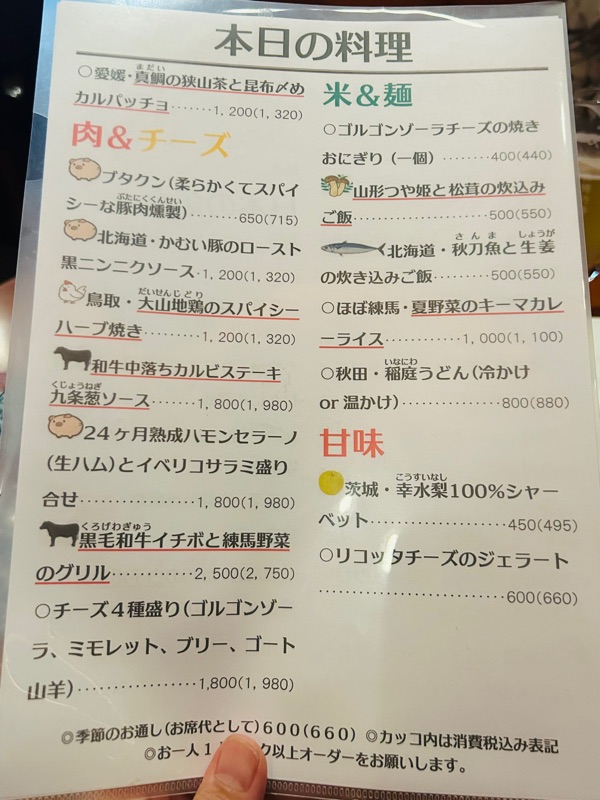 本日の料理
○愛媛・真鯛の狭山茶と昆布〆め
まだい
カルパッチョ……1,200(1,320)
肉&チーズ
ブタクン(柔らかくてスパイ
シーな豚肉燻製)………650(715)
ぶたにくくんせい
北海道・かむい豚のロースト
黒ニンニクソース・1,200(1,320)
鳥取・大山地鶏のスパイシー
だいせんじどり
ハーブ焼き………1,200(1,320)
和牛中落ちカルビステーキ
九条葱ソース……1,800(1,980)
くじょうねぎ
24ヶ月熟成ハモンセラーノ
(生ハム)とイベリコサラミ盛り
合せ………………1,800(1,980)
黒毛和牛イチボと練馬野菜
くろげわぎゅう
のグリル…………2,500(2,750)
○チーズ4種盛り(ゴルゴンゾー
ラ、ミモレット、ブリー、ゴート
山羊)………………1,800(1,980)
米&麺
○ゴルゴンゾーラチーズの焼き
おにぎり(一個)………400(440)
山形つや姫と松茸の炊込み
ご飯……………………500(550)
北海道・秋刀魚と生姜
さんま しょうが
の炊き込みご飯………500(550)
○ほぼ練馬・夏野菜のキーマカレ
ーライス…………1,000(1,100)
○秋田・稲庭うどん(冷かけ
いなにわ
or 温かけ)……………800(880)
甘味
茨城・幸水梨100%シャー
こうすいなし
ベット…………………450(495)
○リコッタチーズのジェラート
…………………………600(660)
◎季節のお通し(お席代として)600(660) ◎カッコ内は消費税込み表記
◎お一人1 ク以上オーダーをお願いします。